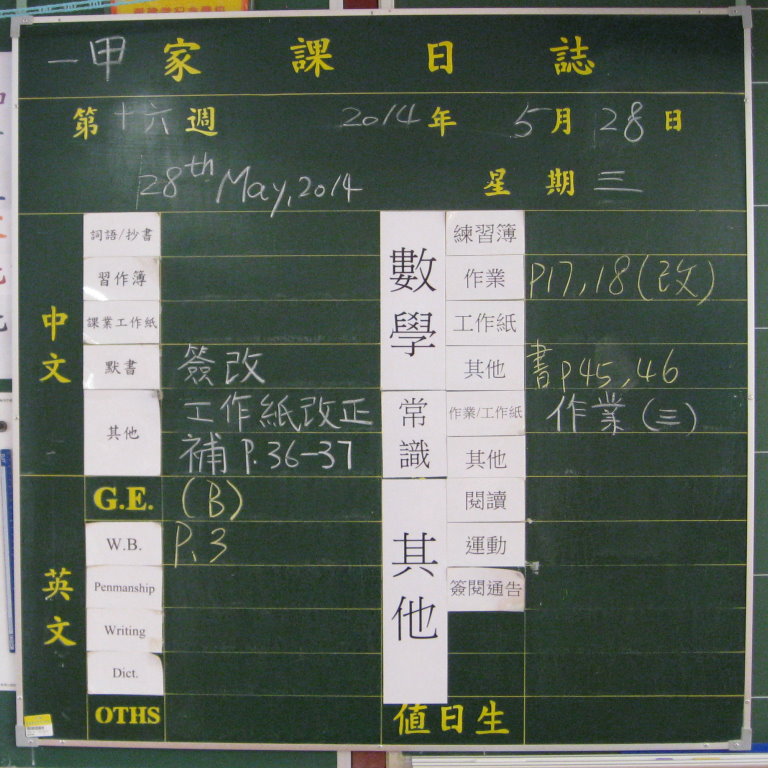 一甲 家 課 日 誌
第 十六 週 2014 年 5 月 28 日
28th May, 2014 星 期 三
中文
詞語/抄書
習作簿
課業工作紙
默書 簽改
其他 工作紙改正
補 P.36-37
英文
G.E. (B)
W.B. P.3
Penmanship
Writing
Dict.
OTHS
數學
練習簿
作業 P17,18(改)
工作紙
其他 書P45,46
常識
作業/工作紙 作業(三)
其他
其他
閱讀
運動
簽閱通告
值日生